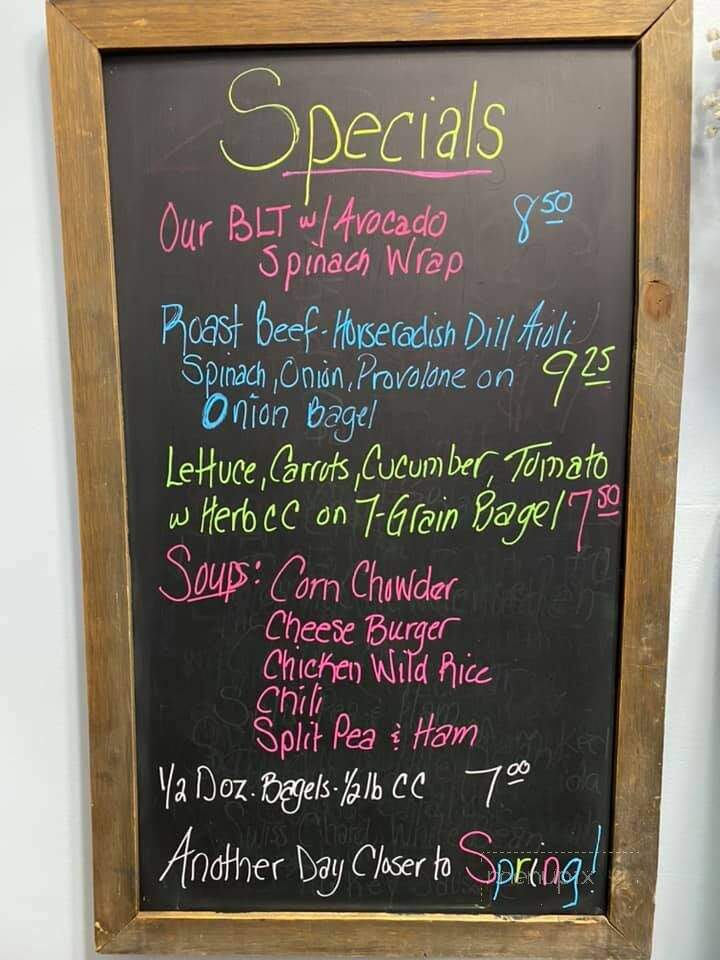 Specials
Our BLT w/ Avocado 8.50
Spinach Wrap
Roast Beef - Horseradish Dill Aioli
Spinach, Onion, Provolone on 9.25
Onion Bagel
Lettuce, Carrots, Cucumber, Tomato
w Herb CC on 7-Grain Bagel 7.50
Soups: Corn Chowder
Cheese Burger
Chicken Wild Rice
Chili
Split Pea & Ham
1/2 Doz. Bagels - 1/2 lb CC 7.00
Another Day Closer to Spring!
menupix